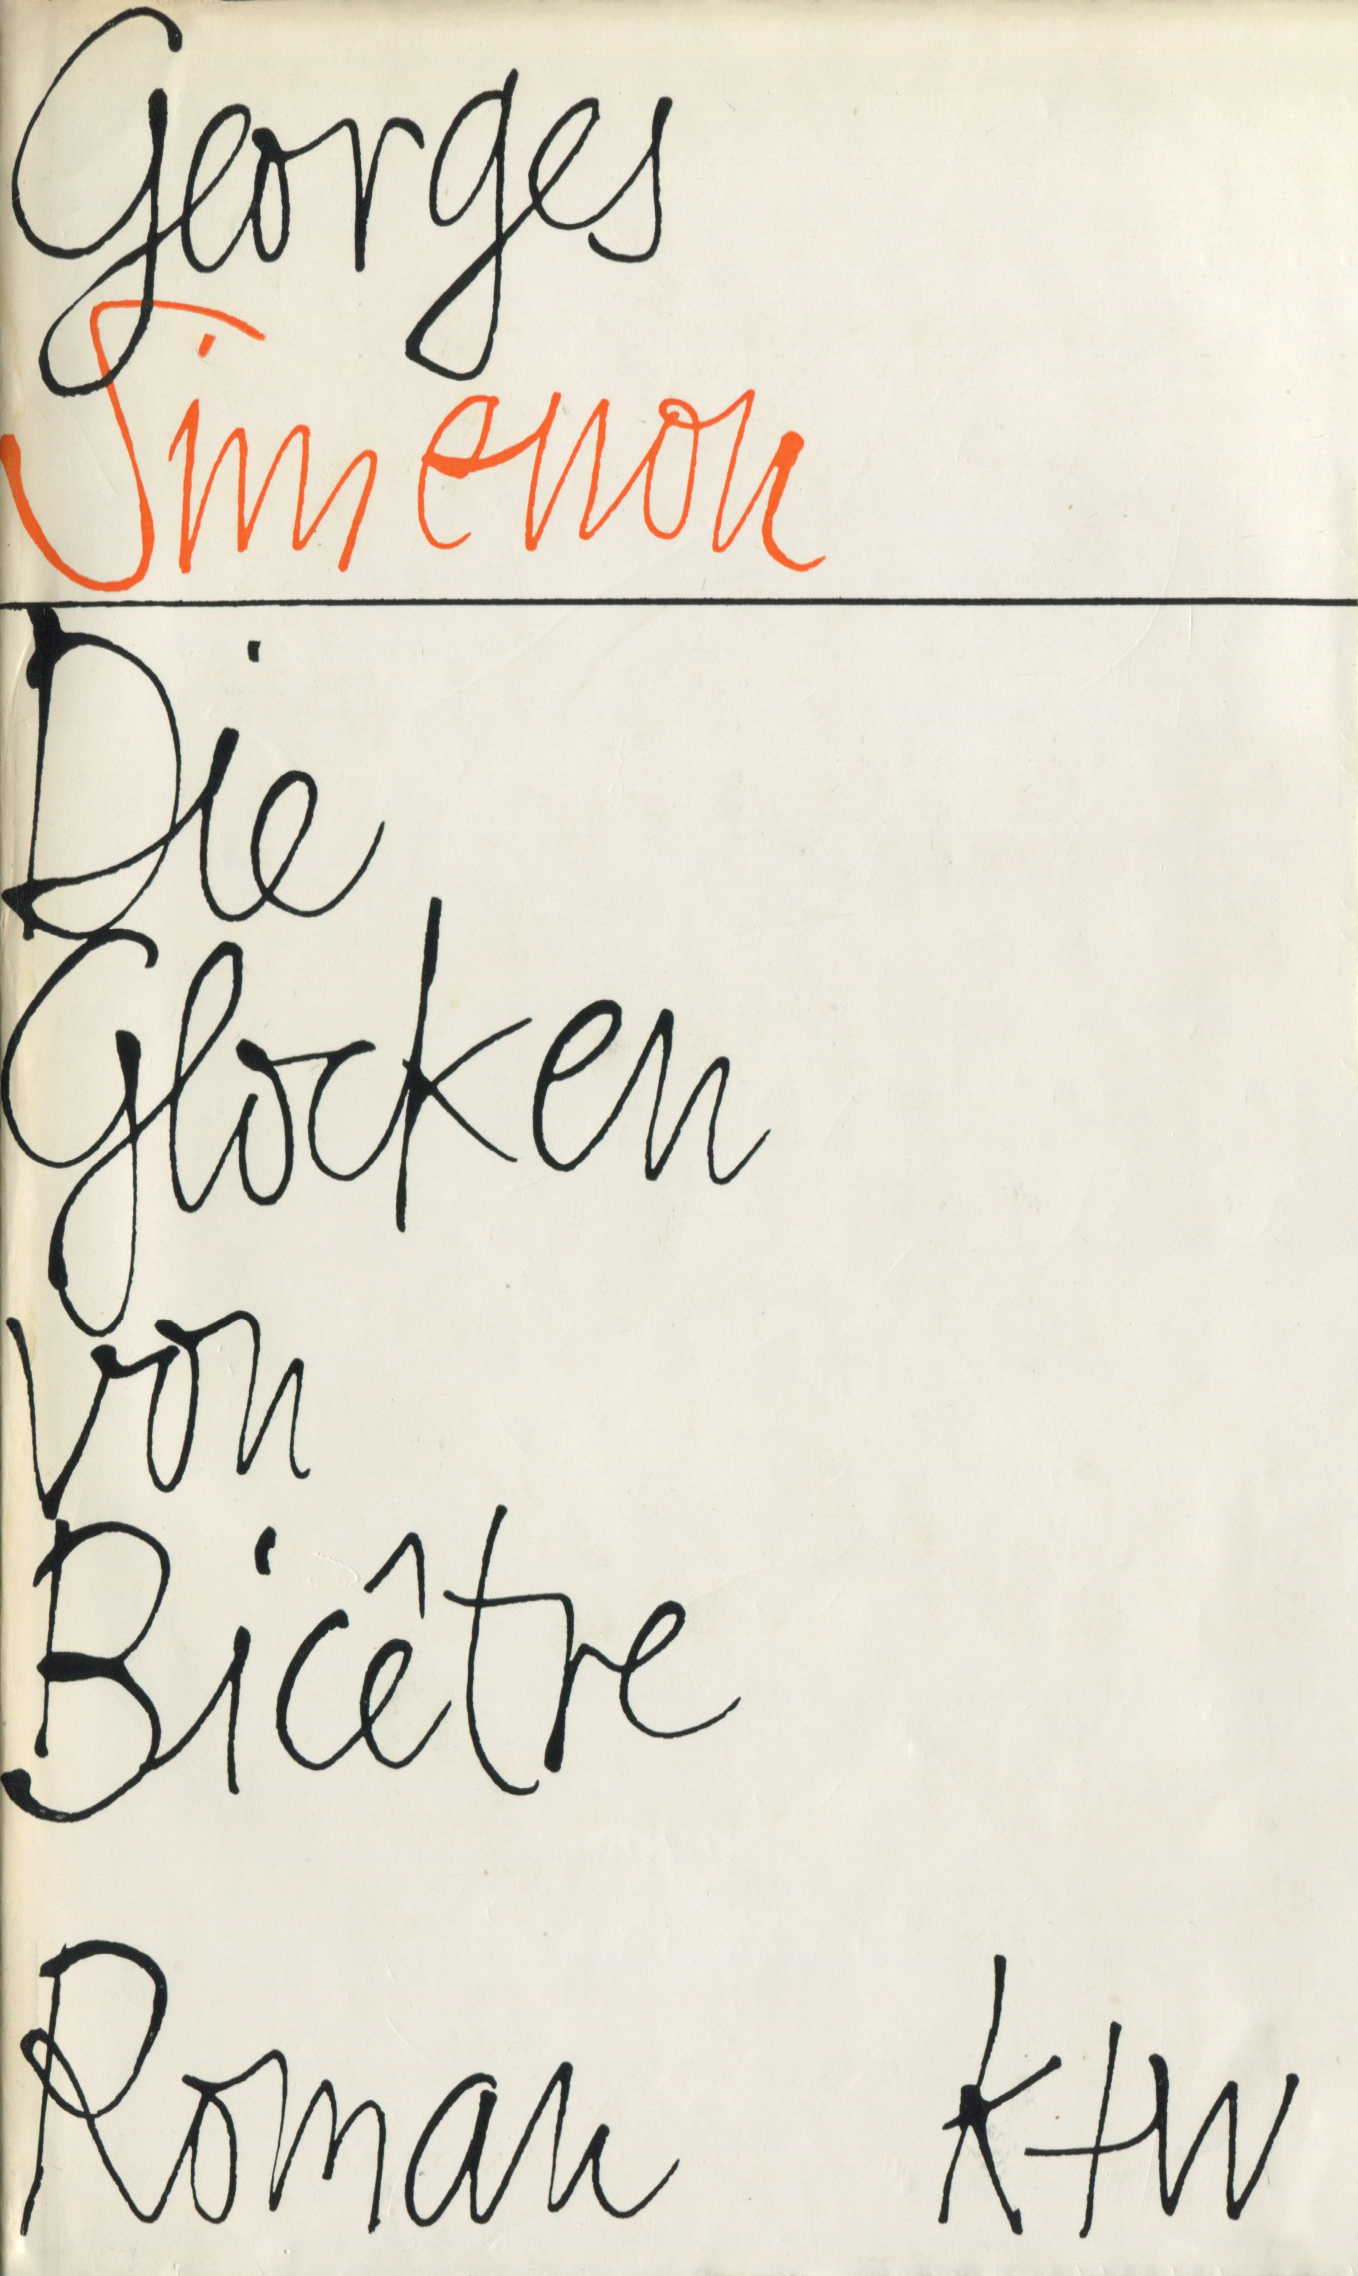 Georges
Simenon
Die
Glocken
von
Bicêtre
Roman
K+W